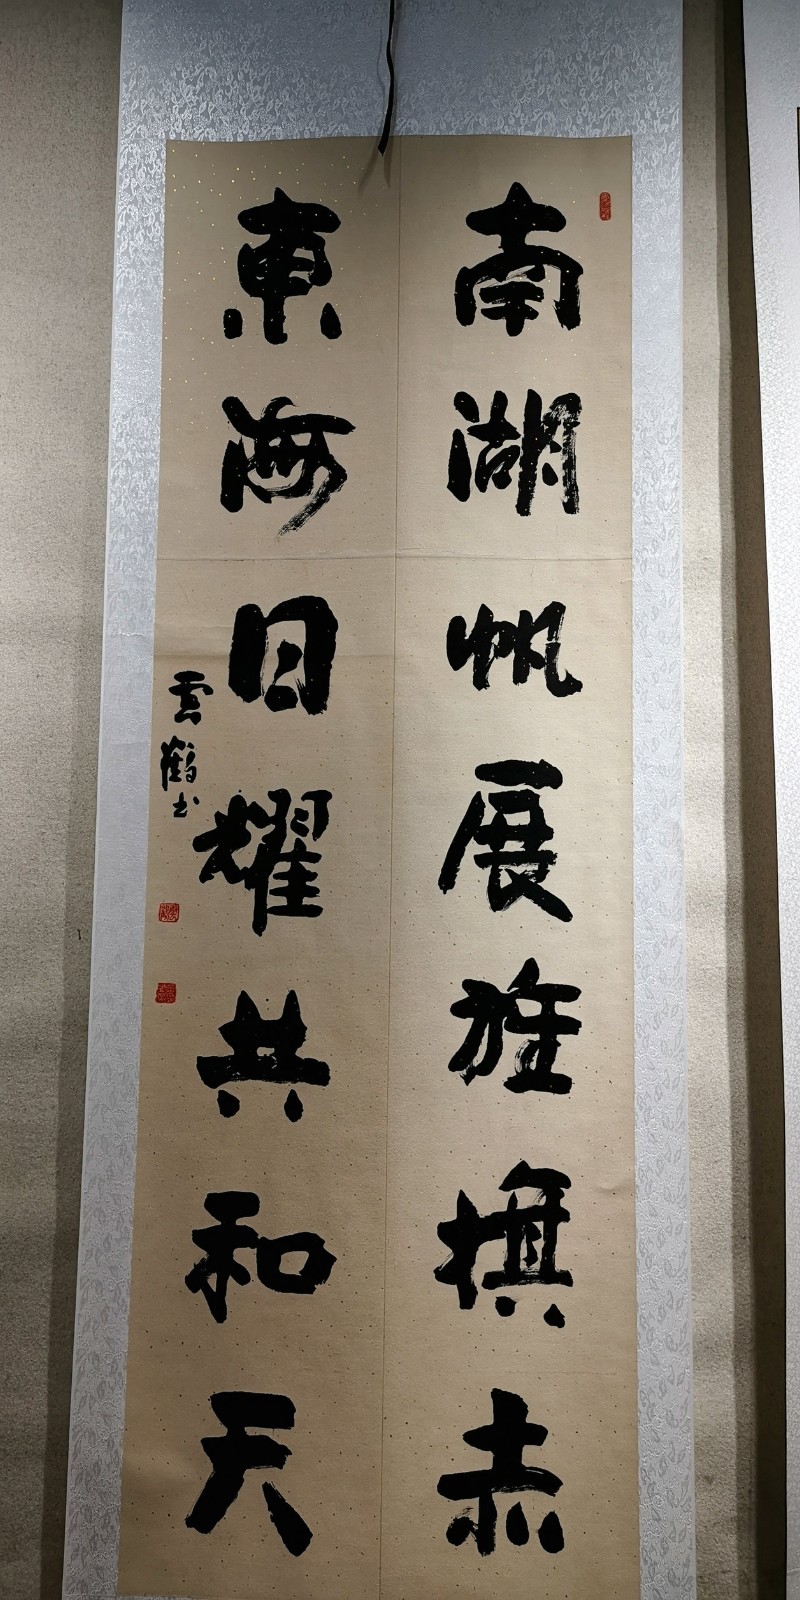 南湖帆展旌旗赤
東海日耀共和天
雲鶴书